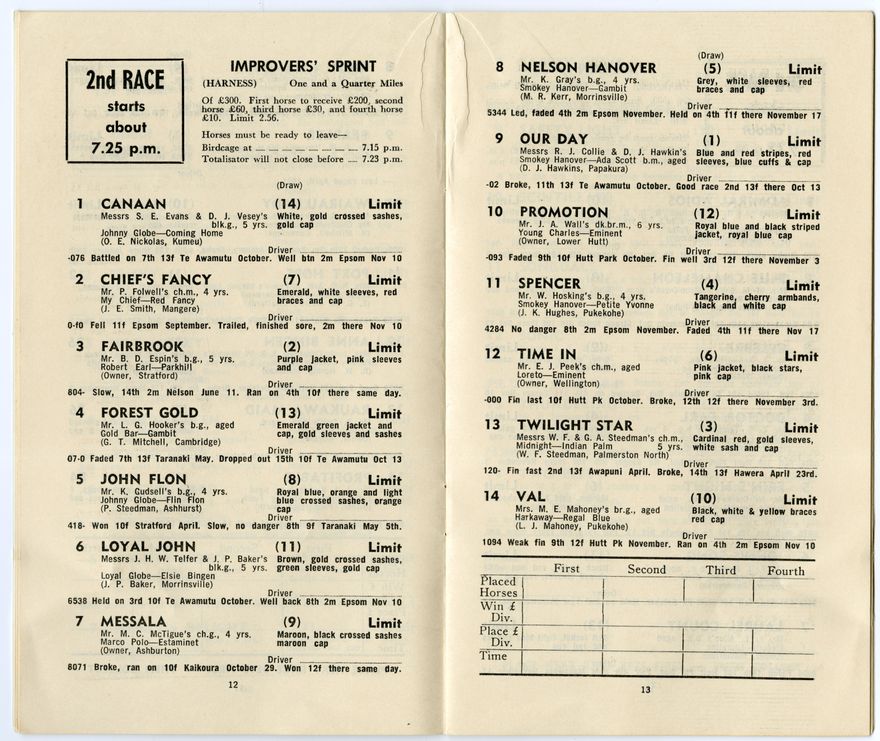 2nd RACE
starts
about
7.25 p.m.
IMPROVERS' SPRINT
(HARNESS) One and a Quarter Miles
Of £300. First horse to receive £200, second
horse £60, third horse £30, and fourth horse
£10. Limit 2.56.
Horses must be ready to leave—
Birdcage at _ _ _ _ _ _ _ _ 7.15 p.m.
Totalisator will not close before _ _ 7.23 p.m.
(Draw)
1 CANAAN (14) Limit
Messrs S. E. Evans & D. J. Vesey's White, gold crossed sashes,
blk.g., 5 yrs. gold cap
Johnny Globe—Coming Home
(O. E. Nickolas, Kumeu)
Driver
-076 Battled on 7th 13f Te Awamutu October. Well btn 2m Epsom Nov 10
2 CHIEF'S FANCY (7) Limit
Mr. P. Folwell's ch.m., 4 yrs. Emerald, white sleeves, red
My Chief—Red Fancy braces and cap
(J. E. Smith, Mangere)
Driver
0-f0 Fell 11f Epsom September. Trailed, finished sore, 2m there Nov 10
3 FAIRBROOK (2) Limit
Mr. B. D. Espin's b.g., 5 yrs. Purple jacket, pink sleeves
Robert Earl—Parkhill and cap
(Owner, Stratford)
Driver
804- Slow, 14th 2m Nelson June 11. Ran on 4th 10f there same day.
4 FOREST GOLD (13) Limit
Mr. L. G. Hooker's b.g., aged Emerald green jacket and
Gold Bar—Gambit cap, gold sleeves and sashes
(G. T. Mitchell, Cambridge)
Driver
07-0 Faded 7th 13f Taranaki May. Dropped out 15th 10f Te Awamutu Oct 13
5 JOHN FLON (8) Limit
Mr. K. Gudsell's b.g., 4 yrs. Royal blue, orange and light
Johnny Globe—Flin Flon blue crossed sashes, orange
(P. Steedman, Ashhurst) cap
Driver
418- Won 10f Stratford April. Slow, no danger 8th 9f Taranaki May 5th.
6 LOYAL JOHN (11) Limit
Messrs J. H. W. Telfer & J. P. Baker's Brown, gold crossed sashes,
blk.g., 5 yrs. green sleeves, gold cap
Loyal Globe—Elsie Bingen
(J. P. Baker, Morrinsville)
Driver
6538 Held on 3rd 10f Te Awamutu October. Well back 8th 2m Epsom Nov 10
7 MESSALA (9) Limit
Mr. M. C. McTigue's ch.g., 4 yrs. Maroon, black crossed sashes
Marco Polo—Estaminet maroon cap
(Owner, Ashburton)
Driver
8071 Broke, ran on 10f Kaikoura October 29. Won 12f there same day.
12
(Draw)
8 NELSON HANOVER (5) Limit
Mr. K. Gray's b.g., 4 yrs. Grey, white sleeves, red
Smokey Hanover—Gambit braces and cap
(M. R. Kerr, Morrinsville)
Driver
5344 Led, faded 4th 2m Epsom November. Held on 4th 11f there November 17
9 OUR DAY (1) Limit
Messrs R. J. Collie & D. J. Hawkin's Blue and red stripes, red
Smokey Hanover—Ada Scott b.m., aged sleeves, blue cuffs & cap
(D. J. Hawkins, Papakura)
Driver
-02 Broke, 11th 13f Te Awamutu October. Good race 2nd 13f there Oct 13
10 PROMOTION (12) Limit
Mr. J. A. Wall's dk.br.m., 6 yrs. Royal blue and black striped
Young Charles—Eminent jacket, royal blue cap
(Owner, Lower Hutt)
Driver
-093 Faded 9th 10f Hutt Park October. Fin well 3rd 12f there November 3
11 SPENCER (4) Limit
Mr. W. Hosking's b.g., 4 yrs. Tangerine, cherry armbands,
Smokey Hanover—Petite Yvonne black and white cap
(J. K. Hughes, Pukekohe)
Driver
4284 No danger 8th 2m Epsom November. Faded 4th 11f there Nov 17
12 TIME IN (6) Limit
Mr. E. J. Peek's ch.m., aged Pink jacket, black stars,
Loreto—Eminent pink cap
(Owner, Wellington)
Driver
-000 Fin last 10f Hutt Pk October. Broke, 12th 12f there November 3rd.
13 TWILIGHT STAR (3) Limit
Messrs W. F. & G. A. Steedman's ch.m., Cardinal red, gold sleeves,
Midnight—Indian Palm 5 yrs. white sash and cap
(W. F. Steedman, Palmerston North)
Driver
120- Fin fast 2nd 13f Awapuni April. Broke, 14th 13f Hawera April 23rd.
14 VAL (10) Limit
Mrs. M. E. Mahoney's br.g., aged Black, white & yellow braces
Harkaway—Regal Blue red cap
(L. J. Mahoney, Pukekohe)
Driver
1094 Weak fin 9th 12f Hutt Pk November. Ran on 4th 2m Epsom Nov 10
First Second Third Fourth
Placed
Horses
Win £
Div.
Place £
Div.
Time
13